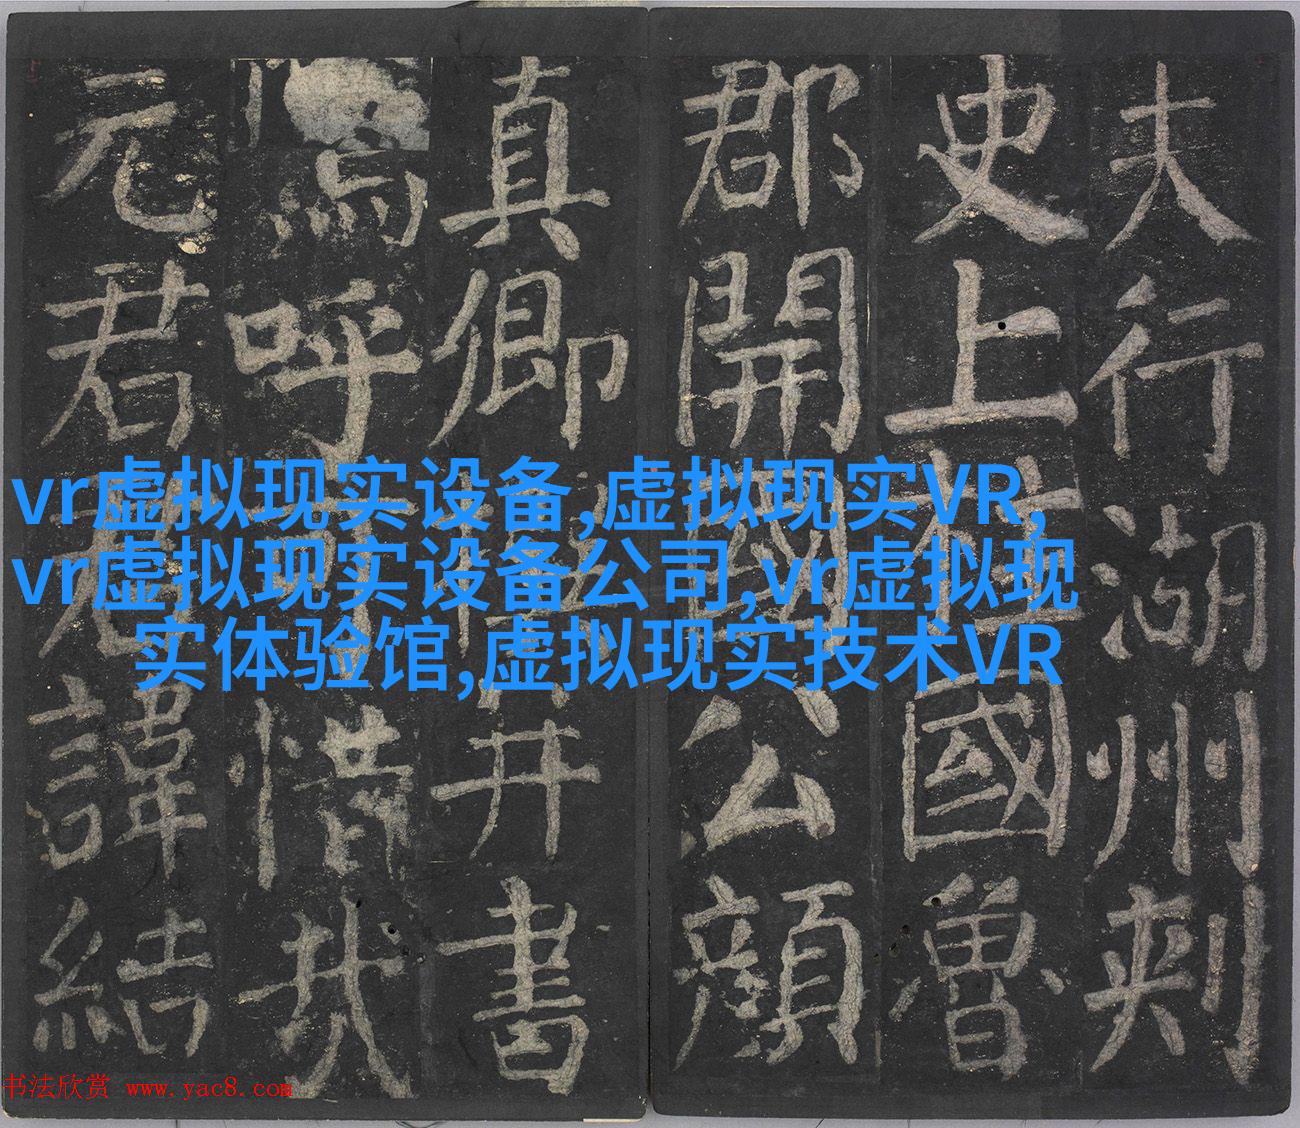 夫行湖州刺
史上柱國魯
郡開國公顏
真卿撰并書
嗚呼惜哉
元君諱結
vr虚拟现实设备,虚拟现实VR,
vr虚拟现实设备公司,vr虚拟现
实体验馆,虚拟现实技术VR
书法欣赏 www.yac8.com